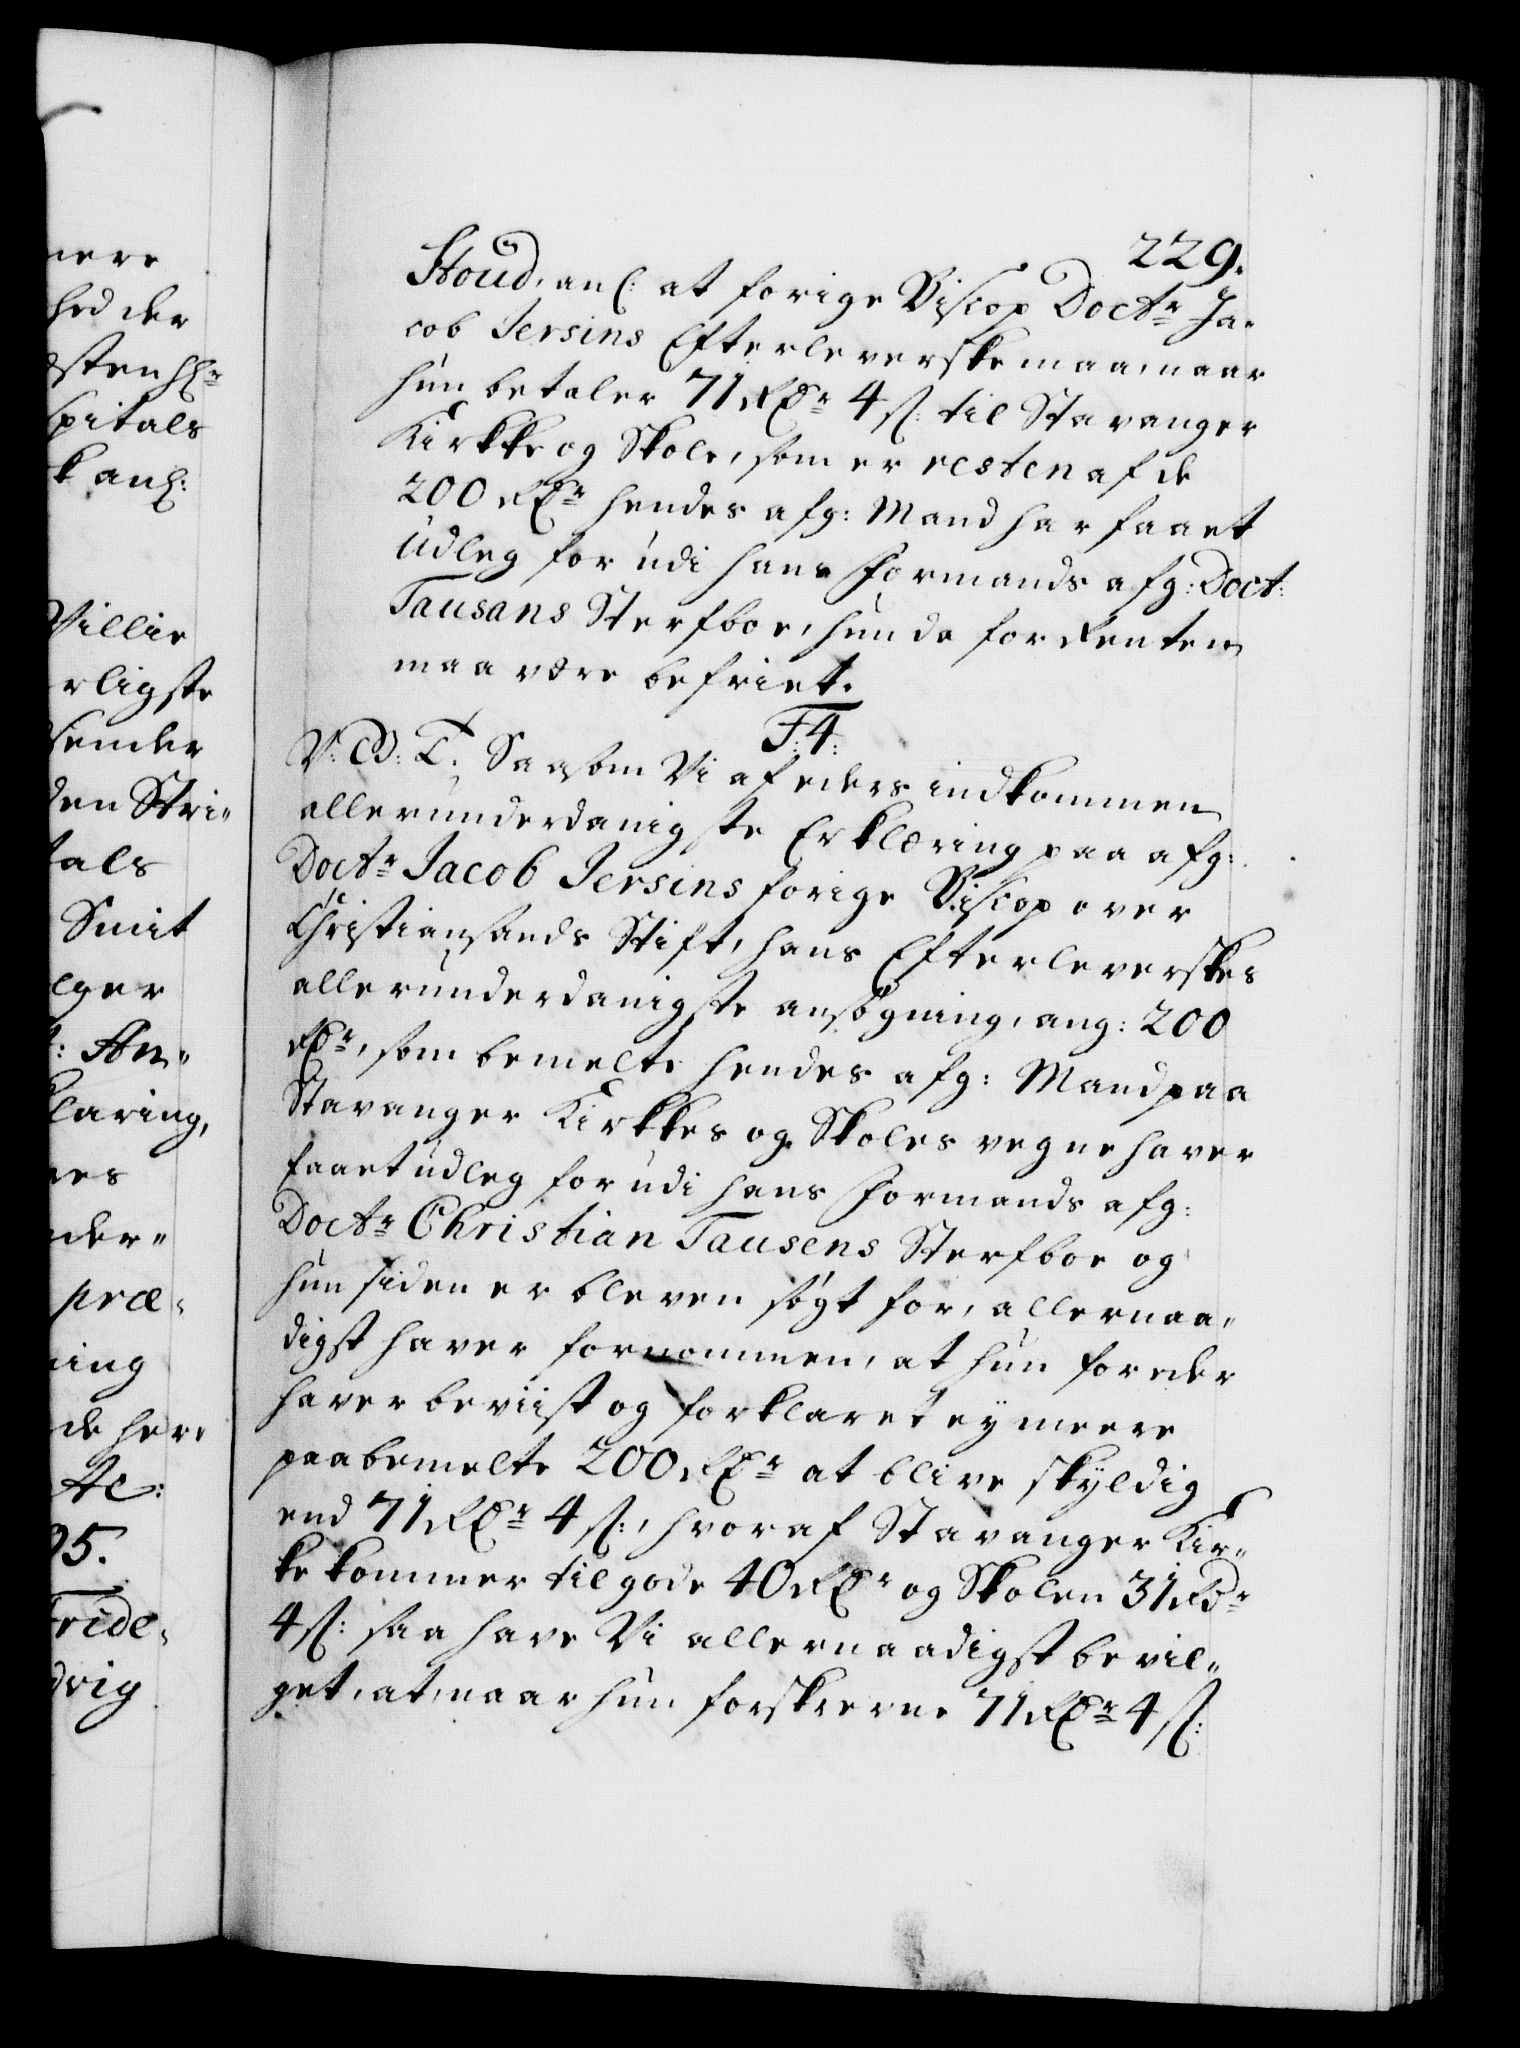 229.
Stoud, anl: at forige Biscop Doctr Ja-
cob Jersins Efterleverske maa, naar
hun betaler 71 Rdr 4 s: til Stavanger
Kirkke og Skole, som er resten af de
200 Rdr hendes afg: Mand har faaet
Udleg for udi hans Formands afg: Doct:
Tausans Sterfboe, hun da for Renten
maa være befriet.
F4:
V: G: T. Saasom Vi af eders indkommen
allerunderdanigste Erklæring paa afg:
Doctr Jacob Jersins forige Biscop over
Christiansands Stift, hans Efterleverskes
allerunderdanigste ansøgning, ang: 200
Rdr, som bemelte hendes afg: Mand paa
Stavanger Kirkkes og Skoles vegne haver
faaet udleg for udi hans Formands afg:
Doctr Christian Tausens Sterfboe og
hun siden er bleven søgt for, allernaa-
digst haver fornommen, at hun for eder
haver beviist og forklaret ey meere
paa bemelte 200 Rdr at blive skyldig
end 71 Rdr 4 s:, hvoraf Stavanger Kir-
ke kommer tilgode 40 Rdr og Skolen 31 Rdr
4 s: saa have Vi allernaadigst bevil-
get, at, naar hun forskrevne 71 Rdr 4 s: